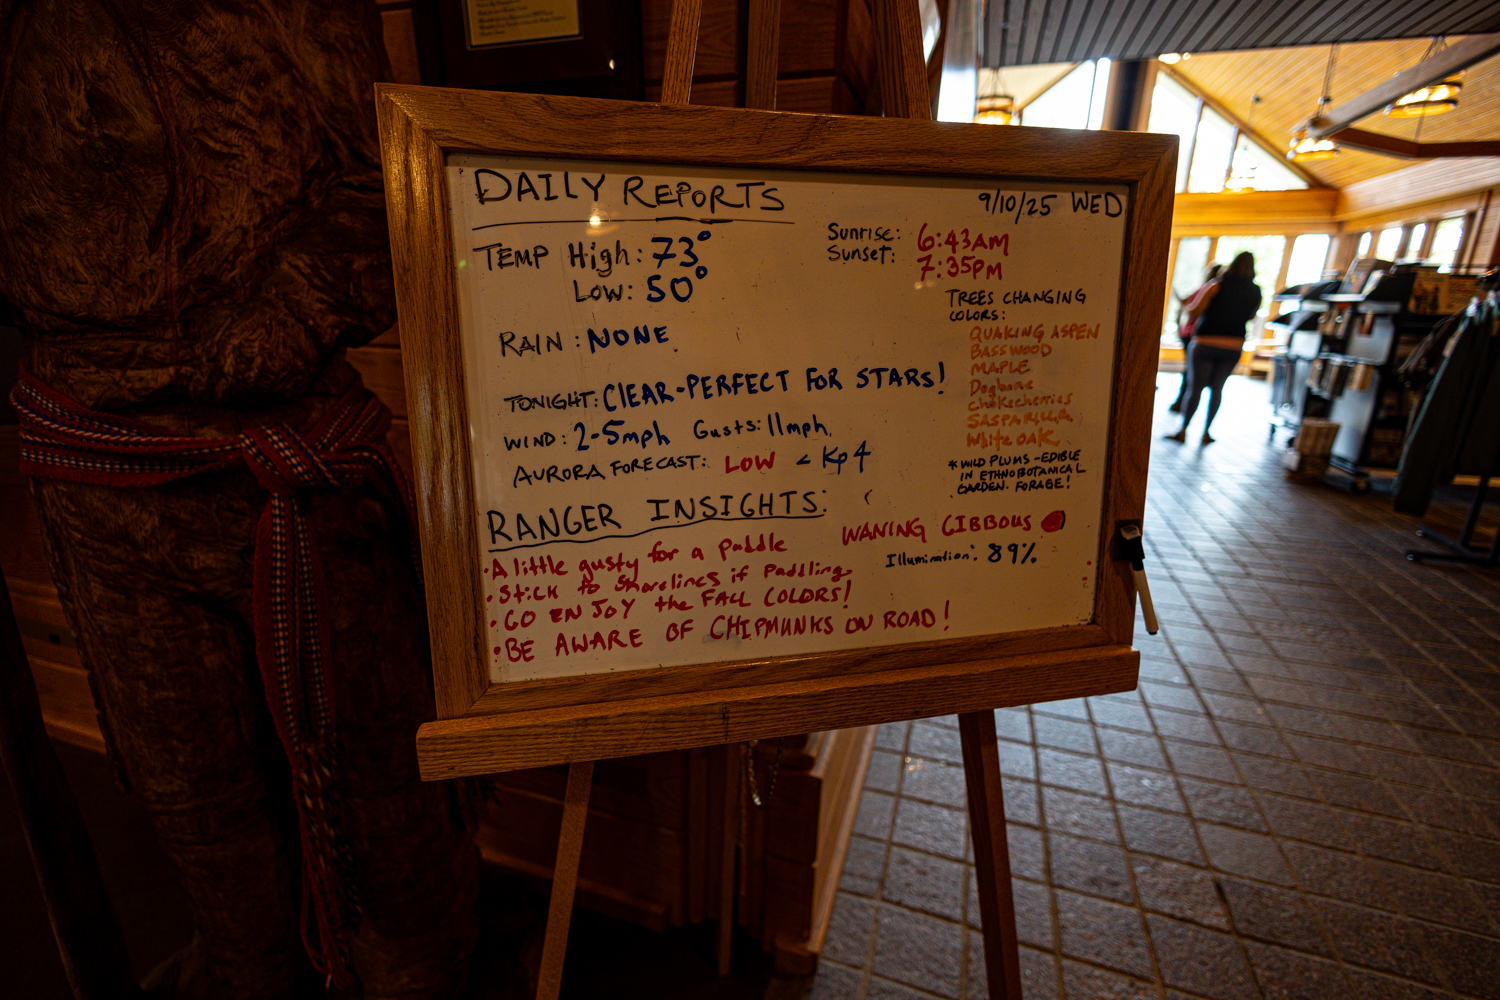 DAILY REPORTS
9/10/25 WED
TEMP High: 73°
Low: 50°
Sunrise: 6:43AM
Sunset: 7:35PM
RAIN: NONE
TONIGHT: CLEAR-PERFECT FOR STARS!
WIND: 2-5mph Gusts: 11mph
AURORA FORECAST: LOW < Kp 4
TREES CHANGING
COLORS:
QUAKING ASPEN
BASSWOOD
MAPLE
Dogbane
chokecherries
SASPARILLA
White OAK
* WILD PLUMS - EDIBLE
IN ETHNOBOTANICAL
GARDEN. FORAGE!
RANGER INSIGHTS:
• A little gusty for a paddle
• Stick to shorelines if Paddling
• GO ENJOY the FALL COLORS!
• BE AWARE OF CHIPMUNKS ON ROAD!
WANING GIBBOUS
Illumination: 89%